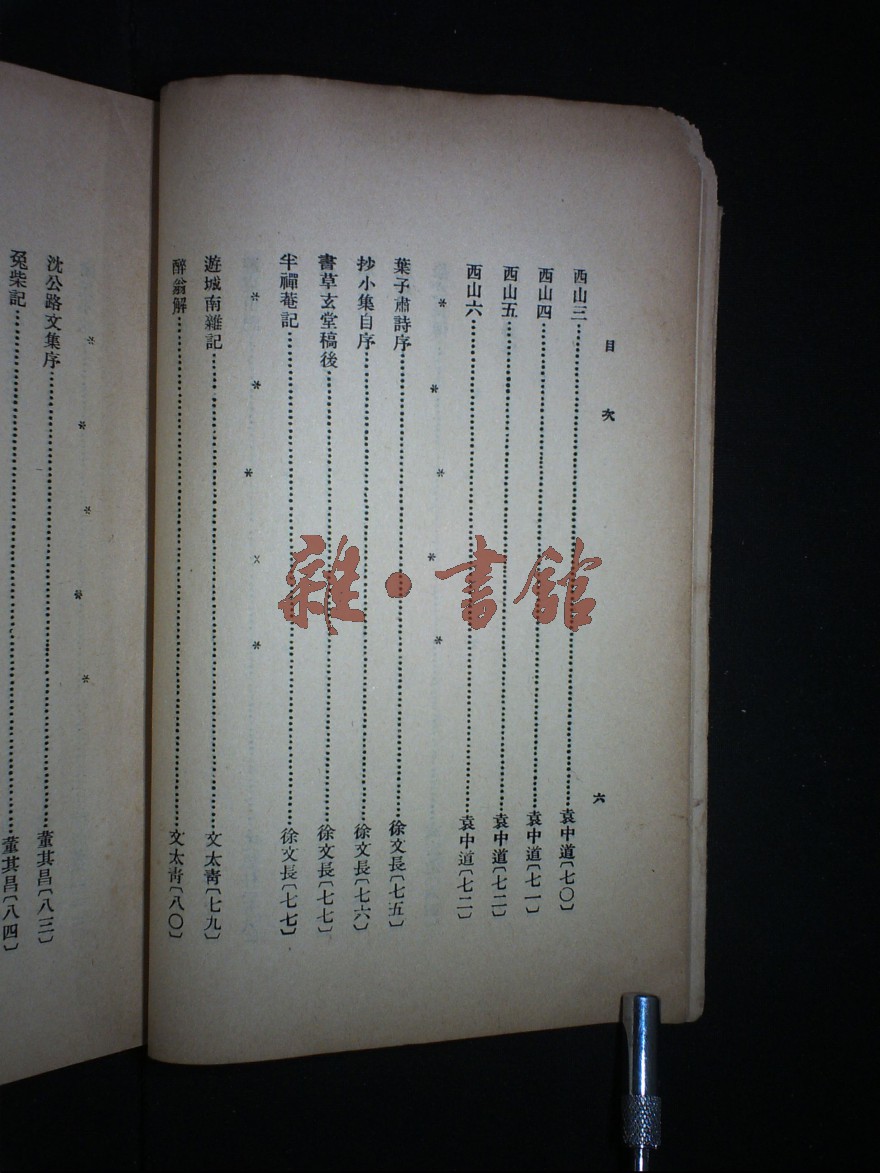 目次 六
西山三 袁中道〔七〇〕
西山四 袁中道〔七一〕
西山五 袁中道〔七二〕
西山六 袁中道〔七二〕
* * * * *
葉子肅詩序 徐文長〔七五〕
抄小集自序 徐文長〔七六〕
書草玄堂稿後 徐文長〔七七〕
半禪菴記 徐文長〔七七〕
* * * * *
遊城南雜記 文太青〔七九〕
醉翁解 文太青〔八〇〕
* * * * *
沈公路文集序 董其昌〔八三〕
兔柴記 董其昌〔八四〕
雜・書館